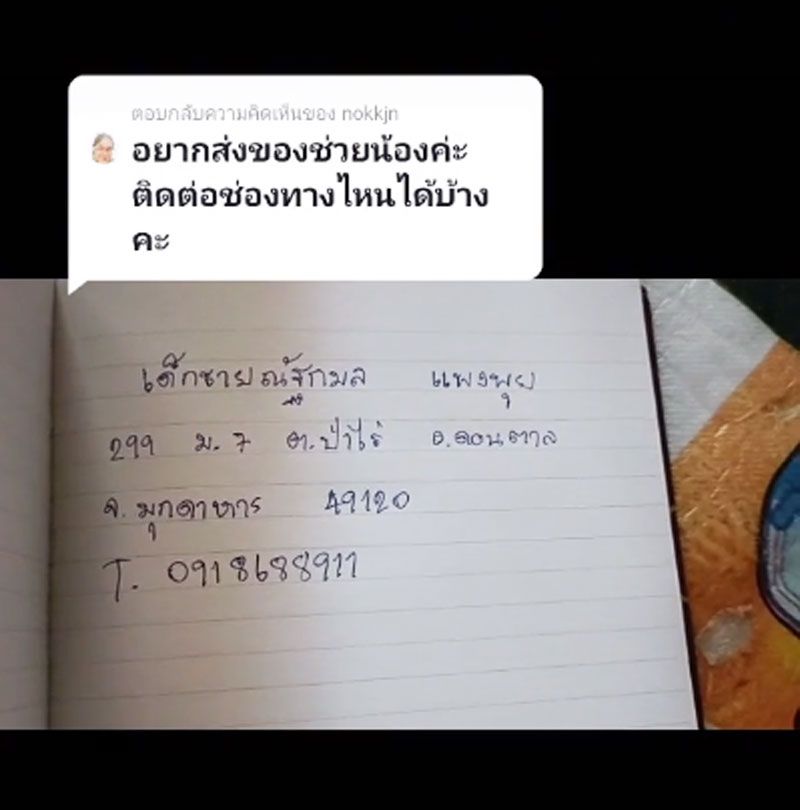 ตอบกลับความคิดเห็นของ nokkjn
อยากส่งของช่วยน้องค่ะ
ติดต่อช่องทางไหนได้บ้าง
คะ
เด็กชายณัฐกมล แพงพุย
299 ม.7 ต.ป่าไร่ อ.ดอนตาล
จ.มุกดาหาร 49120
T. 0918688911